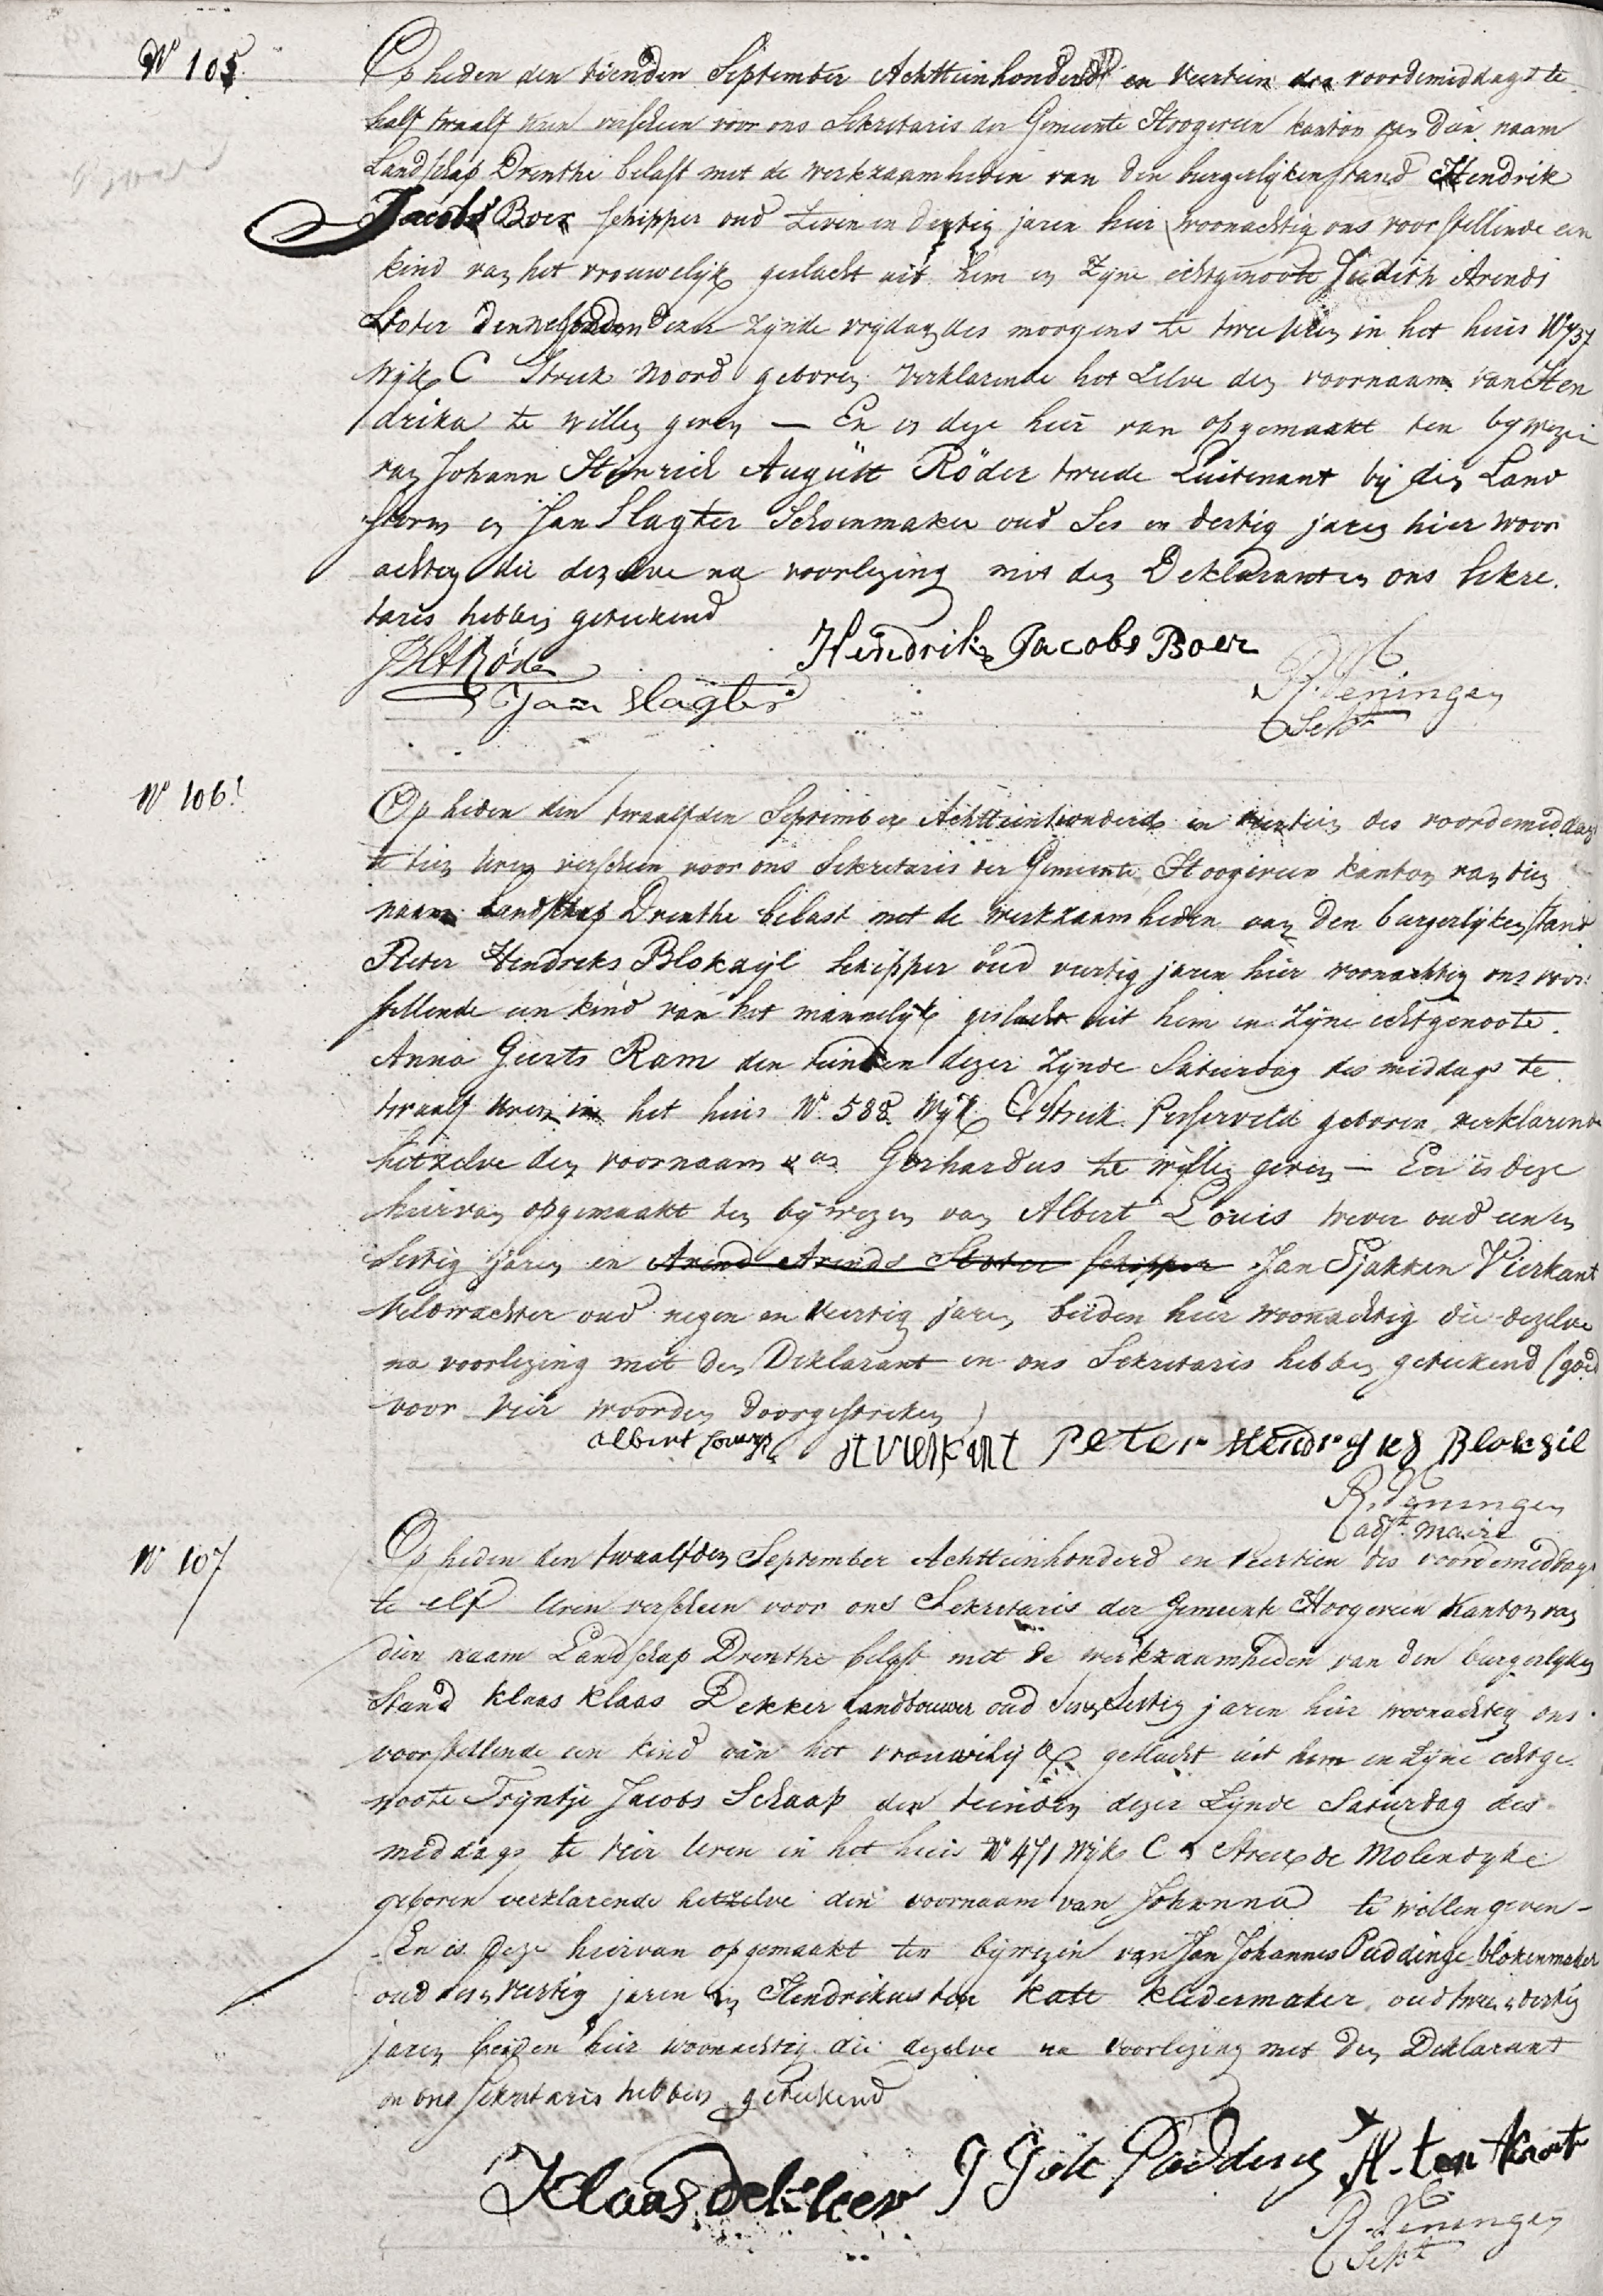 N° 105.
Op heden den tienden September Achtteinhonderd en Veertein des voordemiddags te
half twaalf uren verscheen voor ons Sekretaris der Gemeente Hoogeveen kanton van dien naam
Landschap Drenthe belast met de werkzaamheden van den burgerlijken stand Hendrik
Jacobs Boer schipper oud Zeven en dertig jaren hier woonachtig ons voorstellende een
kind van het vrouwelijk geslacht uit hem en Zijne echtgenoote Judith Arends
Stoter den dezer Zijnde vrijdag des morgens te twee uren in het huis
Wijk C Streek Noord geboren verklarende het Zelve den voornaam van Hen
drika te willen geven — En is deze hier van opgemaakt ten bijwezen
van Johann Heinrich August Röder tweede Luitenant bij den Land
storm en Jan Slagter Schoenmaker oud Ses en dertig jaren hier woon
achtig die dezelve na voorlezing met den Deklarant en ons Sekre.
taris hebben geteekend
JHARöder Hendrik Jacobs Boer
Jan Slagter R. Veningen
Sekt
N° 106.
Op heden den twaalfden September Achtteinhonderd en veertein des voordemiddags
te tien uren verscheen voor ons Sekretaris der Gemeente Hoogeveen kanton van dien
naam Landschap Drenthe belast met de werkzaamheden van den burgerlijken stand
Pieter Hendreks Blokzijl schipper oud veertig jaren hier woonachtig ons voor
stellende een kind van het mannelijk geslacht uit hem en Zijne echtgenoote.
Anna Geerts Ram den teinden dezer Zijnde Saturdag des middags te
twaalf uren in het huis N° 588. Wijk C Streek Pesserveld geboren verklarende
hetzelve den voornaam van Gerhardus te willen geven — En is deze
hiervan opgemaakt ten bijwezen van Albert Louis wever oud een en
Sestig jaren en Arend Arends Stoter schipper Jan Tjakken Vierkant
Veldwachter oud negen en Veertig jaren, beiden hier woonachtig die dezelve
na voorlezing met den Deklarant en ons Sekretaris hebben geteekend (goed
voor vier woorden doorgestreken)
Albert Louwys JT Vierkant Peter Hendryks Bloksil
R. Veningen
adjt. Maire
N° 107
Op heden den twaalfden September Achtteinhonderd en Veertien des voordemiddags
te elf Uren verscheen voor ons Sekretaris der Gemeente Hoogeveen Kanton van
dien naam Landschap Drenthe belast met de werkzaamheden van den burgerlyken
Stand Klaas Klaas Dekker Landbouwer oud jaren hier woonachtig ons
voorstellende een kind van het vrouwelijk geslacht uit hem en Zijne echtge
noote Trijntje Jacobs Schaap den teinden dezer Zijnde Saturdag des
middags te vier Uren in het huis N° 471 Wijk C Streek de Molendyke
geboren verklarende hetzelve den voornaam van Johanna te willen geven -
En is deze hiervan opgemaakt ten bijwezen van Jan Johannes Paddinge blokenmaker
oud veertig jaren en Hendrikus ten Kate Kledermaker oud twee en dertig
jaren beiden hier woonachtig die dezelve na voorlezing met den Deklarant
en ons Sekretaris hebben geteekend
Klaas dekker Padding H. ten Kaate
R. Veningen
Sekt